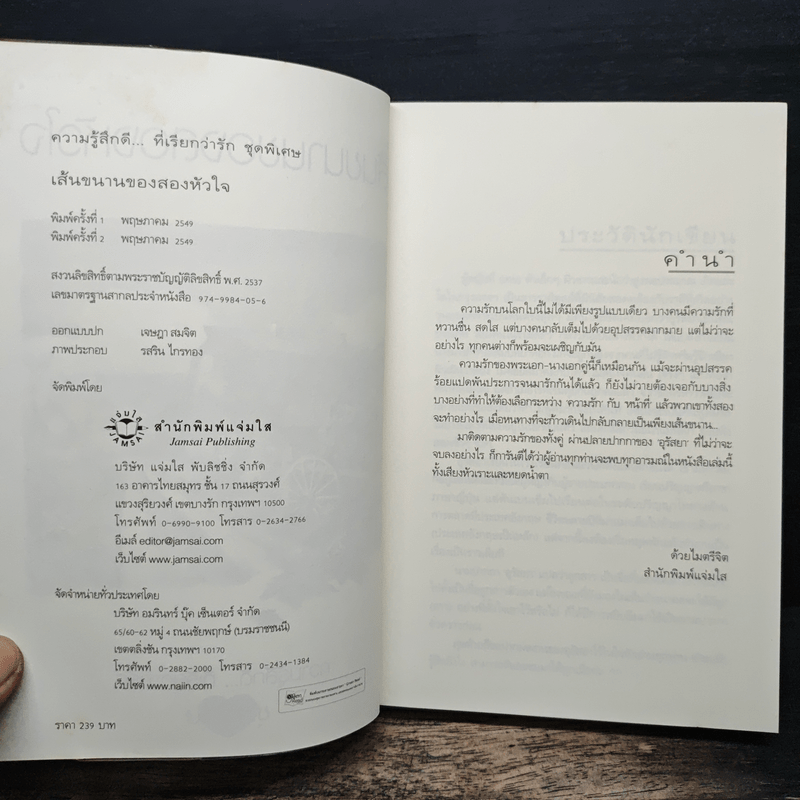 ความรู้สึกดี... ที่เรียกว่ารัก ชุดพิเศษ
เส้นขนานของสองหัวใจ
พิมพ์ครั้งที่ 1 พฤษภาคม 2549
พิมพ์ครั้งที่ 2 พฤษภาคม 2549
สงวนลิขสิทธิ์ตามพระราชบัญญัติลิขสิทธิ์ พ.ศ. 2537
เลขมาตรฐานสากลประจำหนังสือ 974-9984-05-6
ออกแบบปก เจษฎา สมจิต
ภาพประกอบ รสริน ไกรทอง
จัดพิมพ์โดย
แจ่มใส
JAMSAI
สำนักพิมพ์แจ่มใส
Jamsai Publishing
บริษัท แจ่มใส พับลิชชิ่ง จำกัด
163 อาคารไทยสมุทร ชั้น 17 ถนนสุรวงศ์
แขวงสุริยวงศ์ เขตบางรัก กรุงเทพฯ 10500
โทรศัพท์ 0-6990-9100 โทรสาร 0-2634-2766
อีเมล์ editor@jamsai.com
เว็บไซต์ www.jamsai.com
จัดจำหน่ายทั่วประเทศโดย
บริษัท อมรินทร์ บุ๊ค เซ็นเตอร์ จำกัด
65/60-62 หมู่ 4 ถนนชัยพฤกษ์ (บรมราชชนนี)
เขตตลิ่งชัน กรุงเทพฯ 10170
โทรศัพท์ 0-2882-2000 โทรสาร 0-2434-1384
เว็บไซต์ www.naiin.com
ราคา 239 บาท
ประวัตินักเขียน
คำนำ
ความรักบนโลกใบนี้ไม่ได้มีเพียงรูปแบบเดียว บางคนมีความรักที่
หวานชื่น สดใส แต่บางคนกลับเต็มไปด้วยอุปสรรคมากมาย แต่ไม่ว่าจะ
อย่างไร ทุกคนต่างก็พร้อมจะเผชิญกับมัน
ความรักของพระเอก-นางเอกคู่นี้ก็เหมือนกัน แม้จะผ่านอุปสรรค
ร้อยแปดพันประการจนมารักกันได้แล้ว ก็ยังไม่วายต้องเจอกับบางสิ่ง
บางอย่างที่ทำให้ต้องเลือกระหว่าง 'ความรัก' กับ 'หน้าที่' แล้วพวกเขาทั้งสอง
จะทำอย่างไร เมื่อหนทางที่จะก้าวเดินไปกลับกลายเป็นเพียงเส้นขนาน...
มาติดตามความรักของทั้งคู่ ผ่านปลายปากกาของ 'อุรัสยา' ที่ไม่ว่าจะ
จบลงอย่างไร ก็การันตีได้ว่าผู้อ่านทุกท่านจะพบทุกอารมณ์ในหนังสือเล่มนี้
ทั้งเสียงหัวเราะและหยดน้ำตา
ด้วยไมตรีจิต
สำนักพิมพ์แจ่มใส